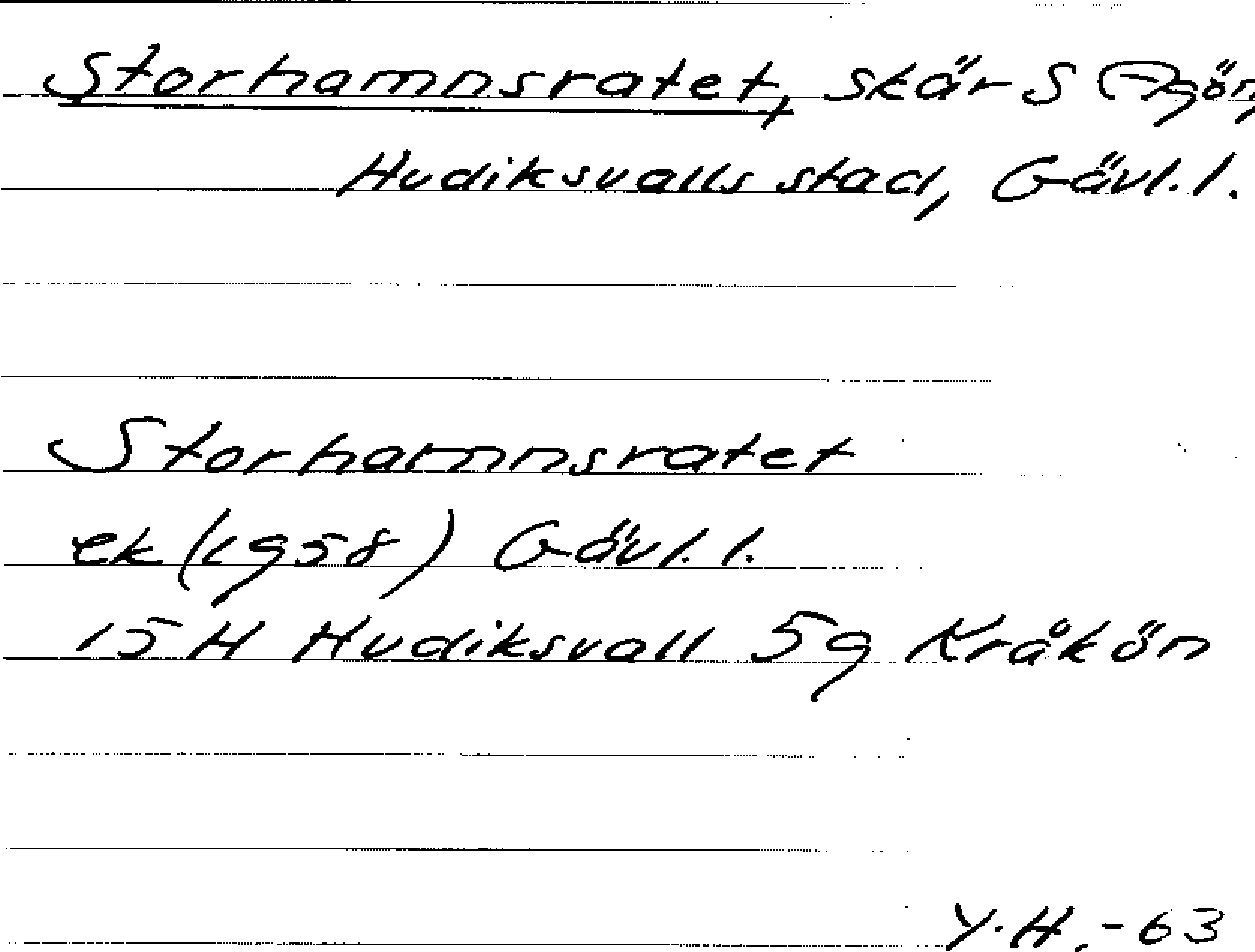 Storhamnsratet, skär S Agön,
Hudiksvalls stad, Gävl. l.
Storhamnsratet
ek (1958) Gävl. l.
15 H Hudiksvall 5g Kråkön
Y.H.-63